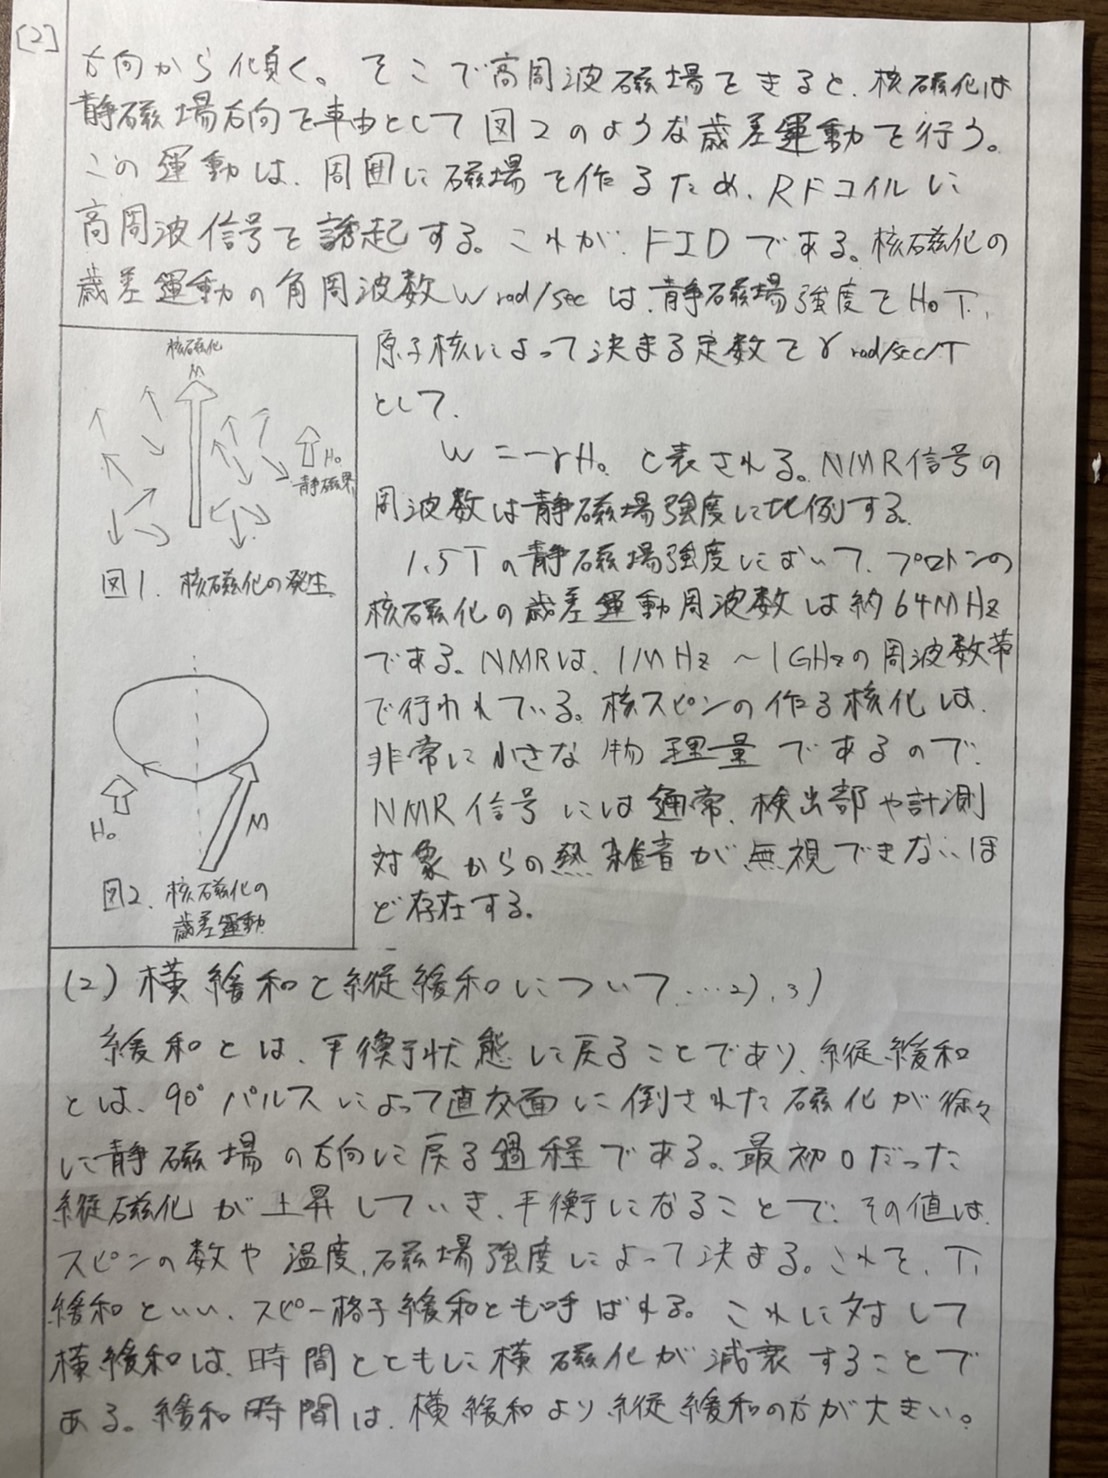 [2]
方向から傾く。そこで高周波磁場をきると、核磁化は
静磁場方向を軸として図2のような歳差運動を行う。
この運動は、周囲に磁場を作るため、RFコイルに
高周波信号を誘起する。これが、FIDである。核磁化の
歳差運動の角周波数w rad/secは、静磁場強度をH₀T、
原子核によって決まる定数をγ rad/sec/T
として、
w=-γH₀ と表される。NMR信号の
周波数は静磁場強度に比例する。
1.5Tの静磁場強度において、プロトンの
核磁化の歳差運動周波数は約64MHz
である。NMRは、1MHz～1GHzの周波数帯
で行われている。核スピンの作る核化は、
非常に小さな物理量であるので、
NMR信号には通常、検出部や計測
対象からの熱雑音が無視できないほ
ど存在する。
核磁化
M
H₀
静磁界
図1. 核磁化の発生
H₀
M
図2. 核磁化の
歳差運動
(2) 横緩和と縦緩和について…2),3)
緩和とは、平衡状態に戻ることであり、縦緩和
とは、90°パルスによって直交面に倒された磁化が徐々
に静磁場の方向に戻る過程である。最初0だった
縦磁化が上昇していき、平衡になることで、その値は、
スピンの数や温度、磁場強度によって決まる。これを、T₁
緩和といい、スピー格子緩和とも呼ばれる。これに対して
横緩和は、時間とともに横磁化が減衰することで
ある。緩和時間は、横緩和より縦緩和の方が大きい。